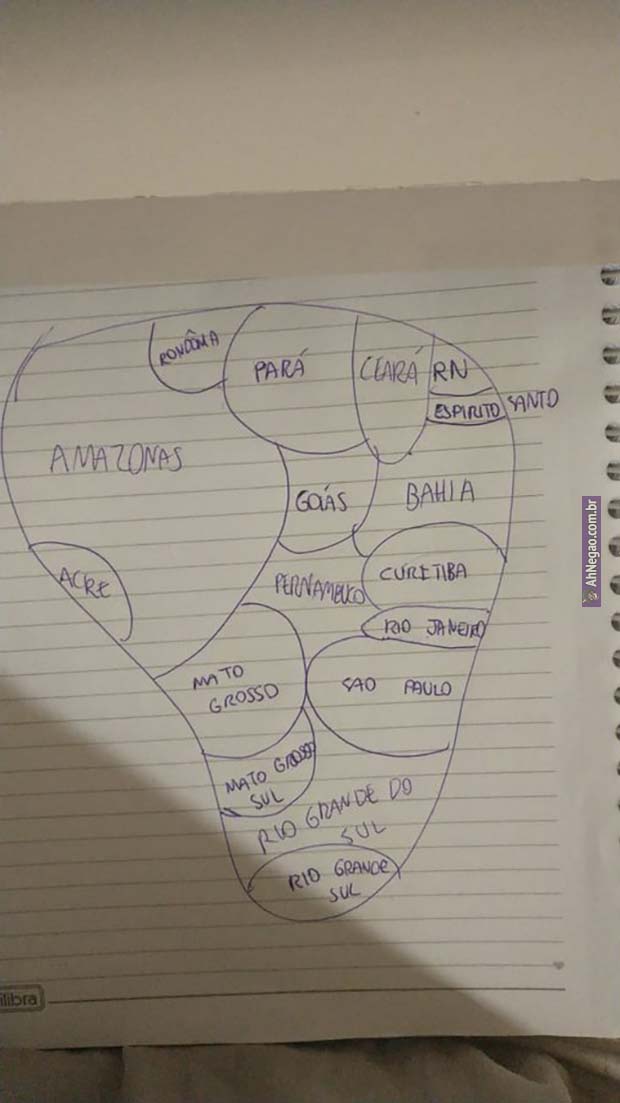 RONDÔNIA
PARÁ
CEARÁ
RN
ESPIRITO SANTO
AMAZONAS
GOIÁS
BAHIA
ACRE
PERNAMBUCO
CURITIBA
RIO JANEIRO
MATO
GROSSO
SAO PAULO
MATO GROSSO
SUL
RIO GRANDE DO
SUL
RIO GRANDE
SUL
ilibra
AhNegao.com.br